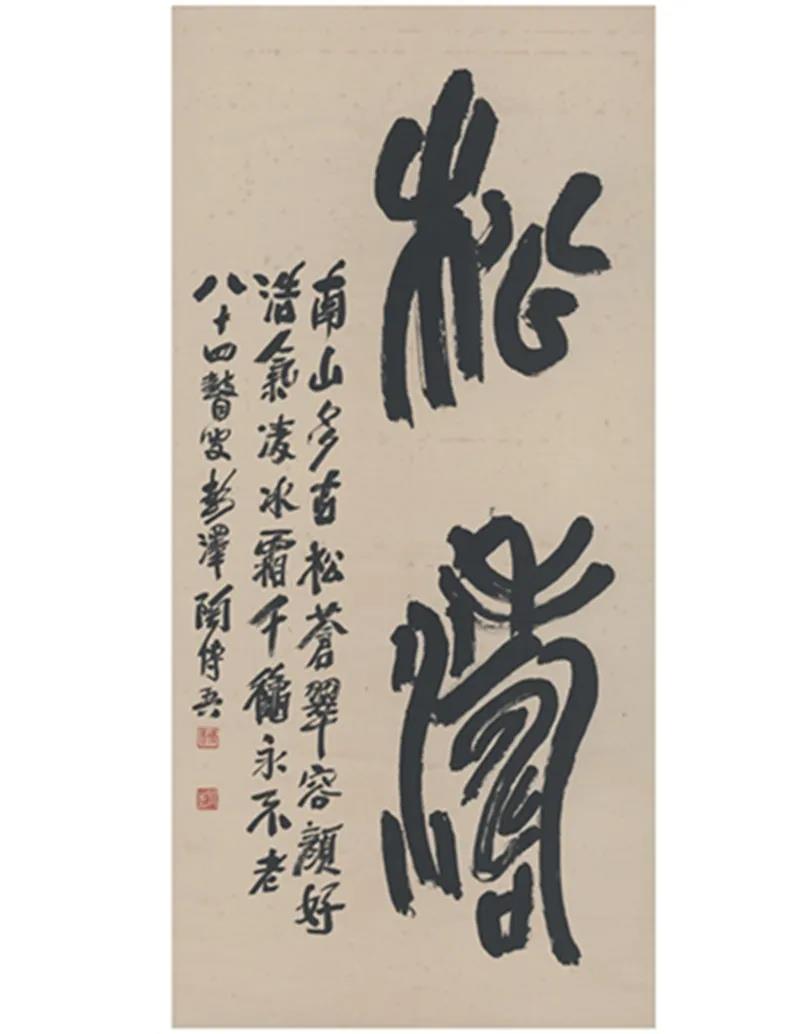 松濤
南山多古松蒼翠容顏好
浩氣凌冰霜千穐永不老
八十四瞽叟彭澤陶博吾